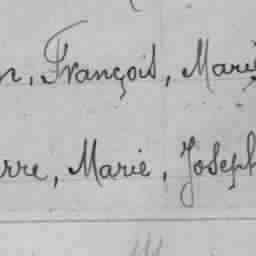 n, François, Marie
erre, Marie, Joseph